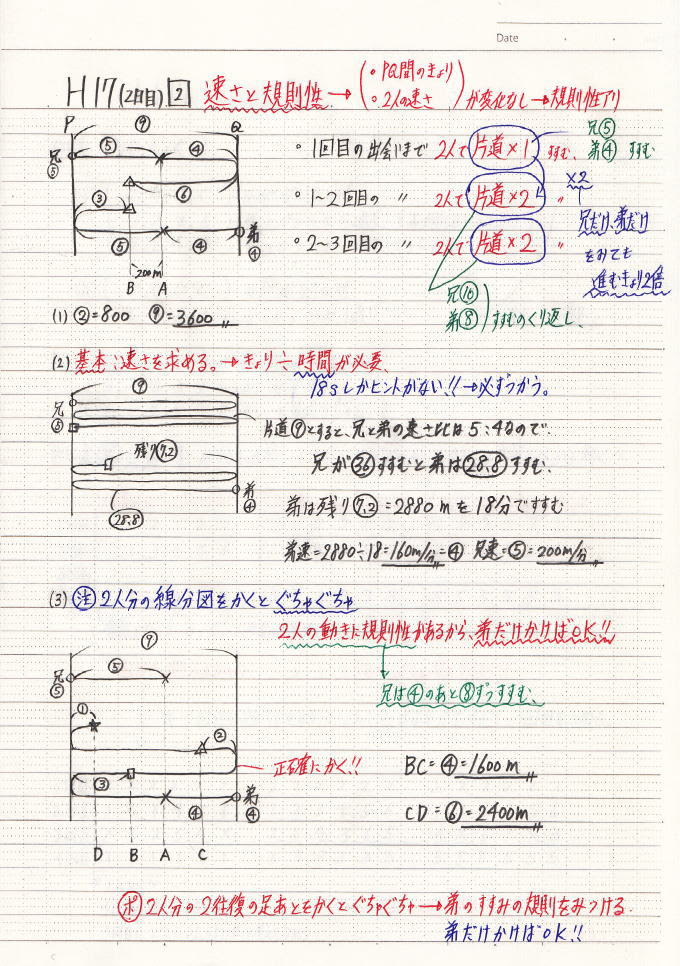 Date
H17(2日目) 2 速さと規則性→(・PQ間のきょり ・2人の速さ)が変化なし→規則性アリ
P ⑨ Q
兄⑤ ⑤ ④
⑥
③
⑤ ④ 弟④
200m
B A
・1回目の出会いまで 2人で 片道×1 すすむ、 兄⑤ 弟④ すすむ
・1~2回目の 〃 2人で 片道×2 〃
・2~3回目の 〃 2人で 片道×2 〃
×2
兄だけ、弟だけ
をみても
進むきょり2倍
兄⑩
弟⑧ すすむのくり返し、
(1) ②=800 ⑨=3600〃
(2) 基本:速さを求める。→きょり÷時間が必要、
18分しかヒントがない!!→必ずつかう。
⑨
兄⑤
残り(7.2)
弟④
(28.8)
片道⑨とすると、兄と弟の速さ比は5:4なので、
兄が㊱すすむと弟は(28.8)すすむ、
弟は残り(7.2)=2880mを18分ですすむ
弟速=2880÷18=160m/分=④ 兄速=⑤=200m/分〃
(3) 注 2人分の線分図をかくとぐちゃぐちゃ
2人の動きに規則性があるから、弟だけかけばOK!!
兄は④のあと⑧ずつすすむ、
⑨
兄⑤ ⑤
①
②
③
④ 弟④
D B A C
正確にかく!!
BC=④=1600m〃
CD=⑥=2400m〃
ポ 2人分の2往復の足あとをかくとぐちゃぐちゃ→弟のすすみの規則をみつける
弟だけかけばOK!!